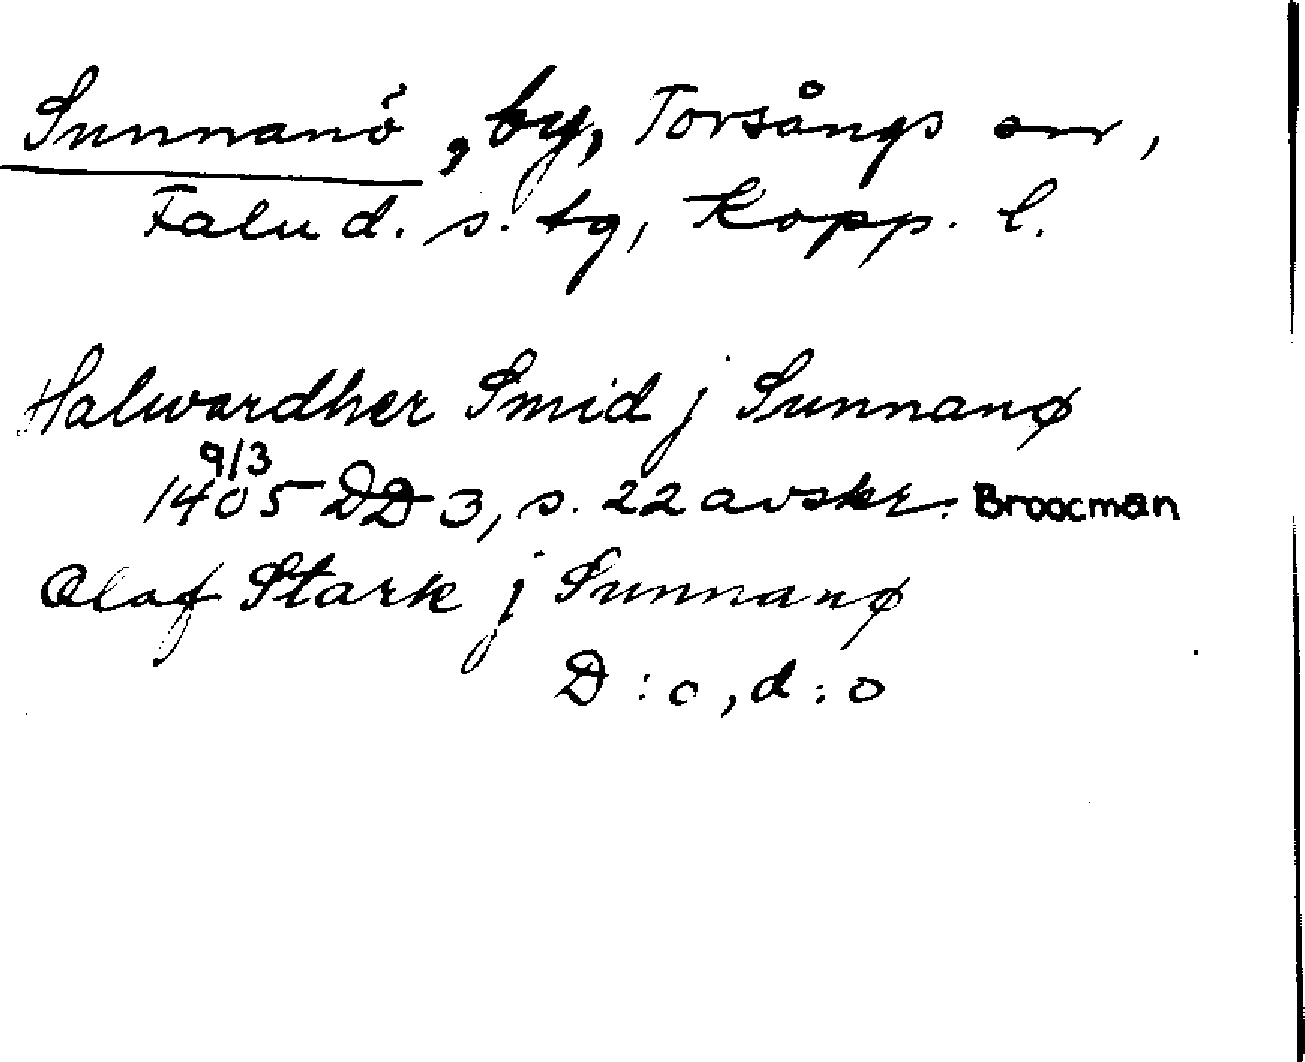 Sunnanö, by, Torsångs sn,
Falu d. s. tg, Kopp. l.
Halwardher Smid j Sunnanø
9/3
1405 DD 3, s. 22 avskr. Broocman
Olaf Stark j Sunnanø
D : o, d : o